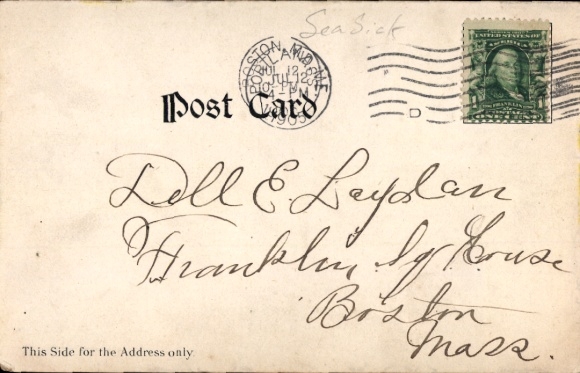 Sea Sick
BOSTON, MASS.
JUL 12
1905
D
UNITED STATES OF
AMERICA
FRANKLIN
POSTAGE
ONE CENT
Post Card
Dell E. Laydan
Franklin Sq House
Boston
Mass.
This Side for the Address only.